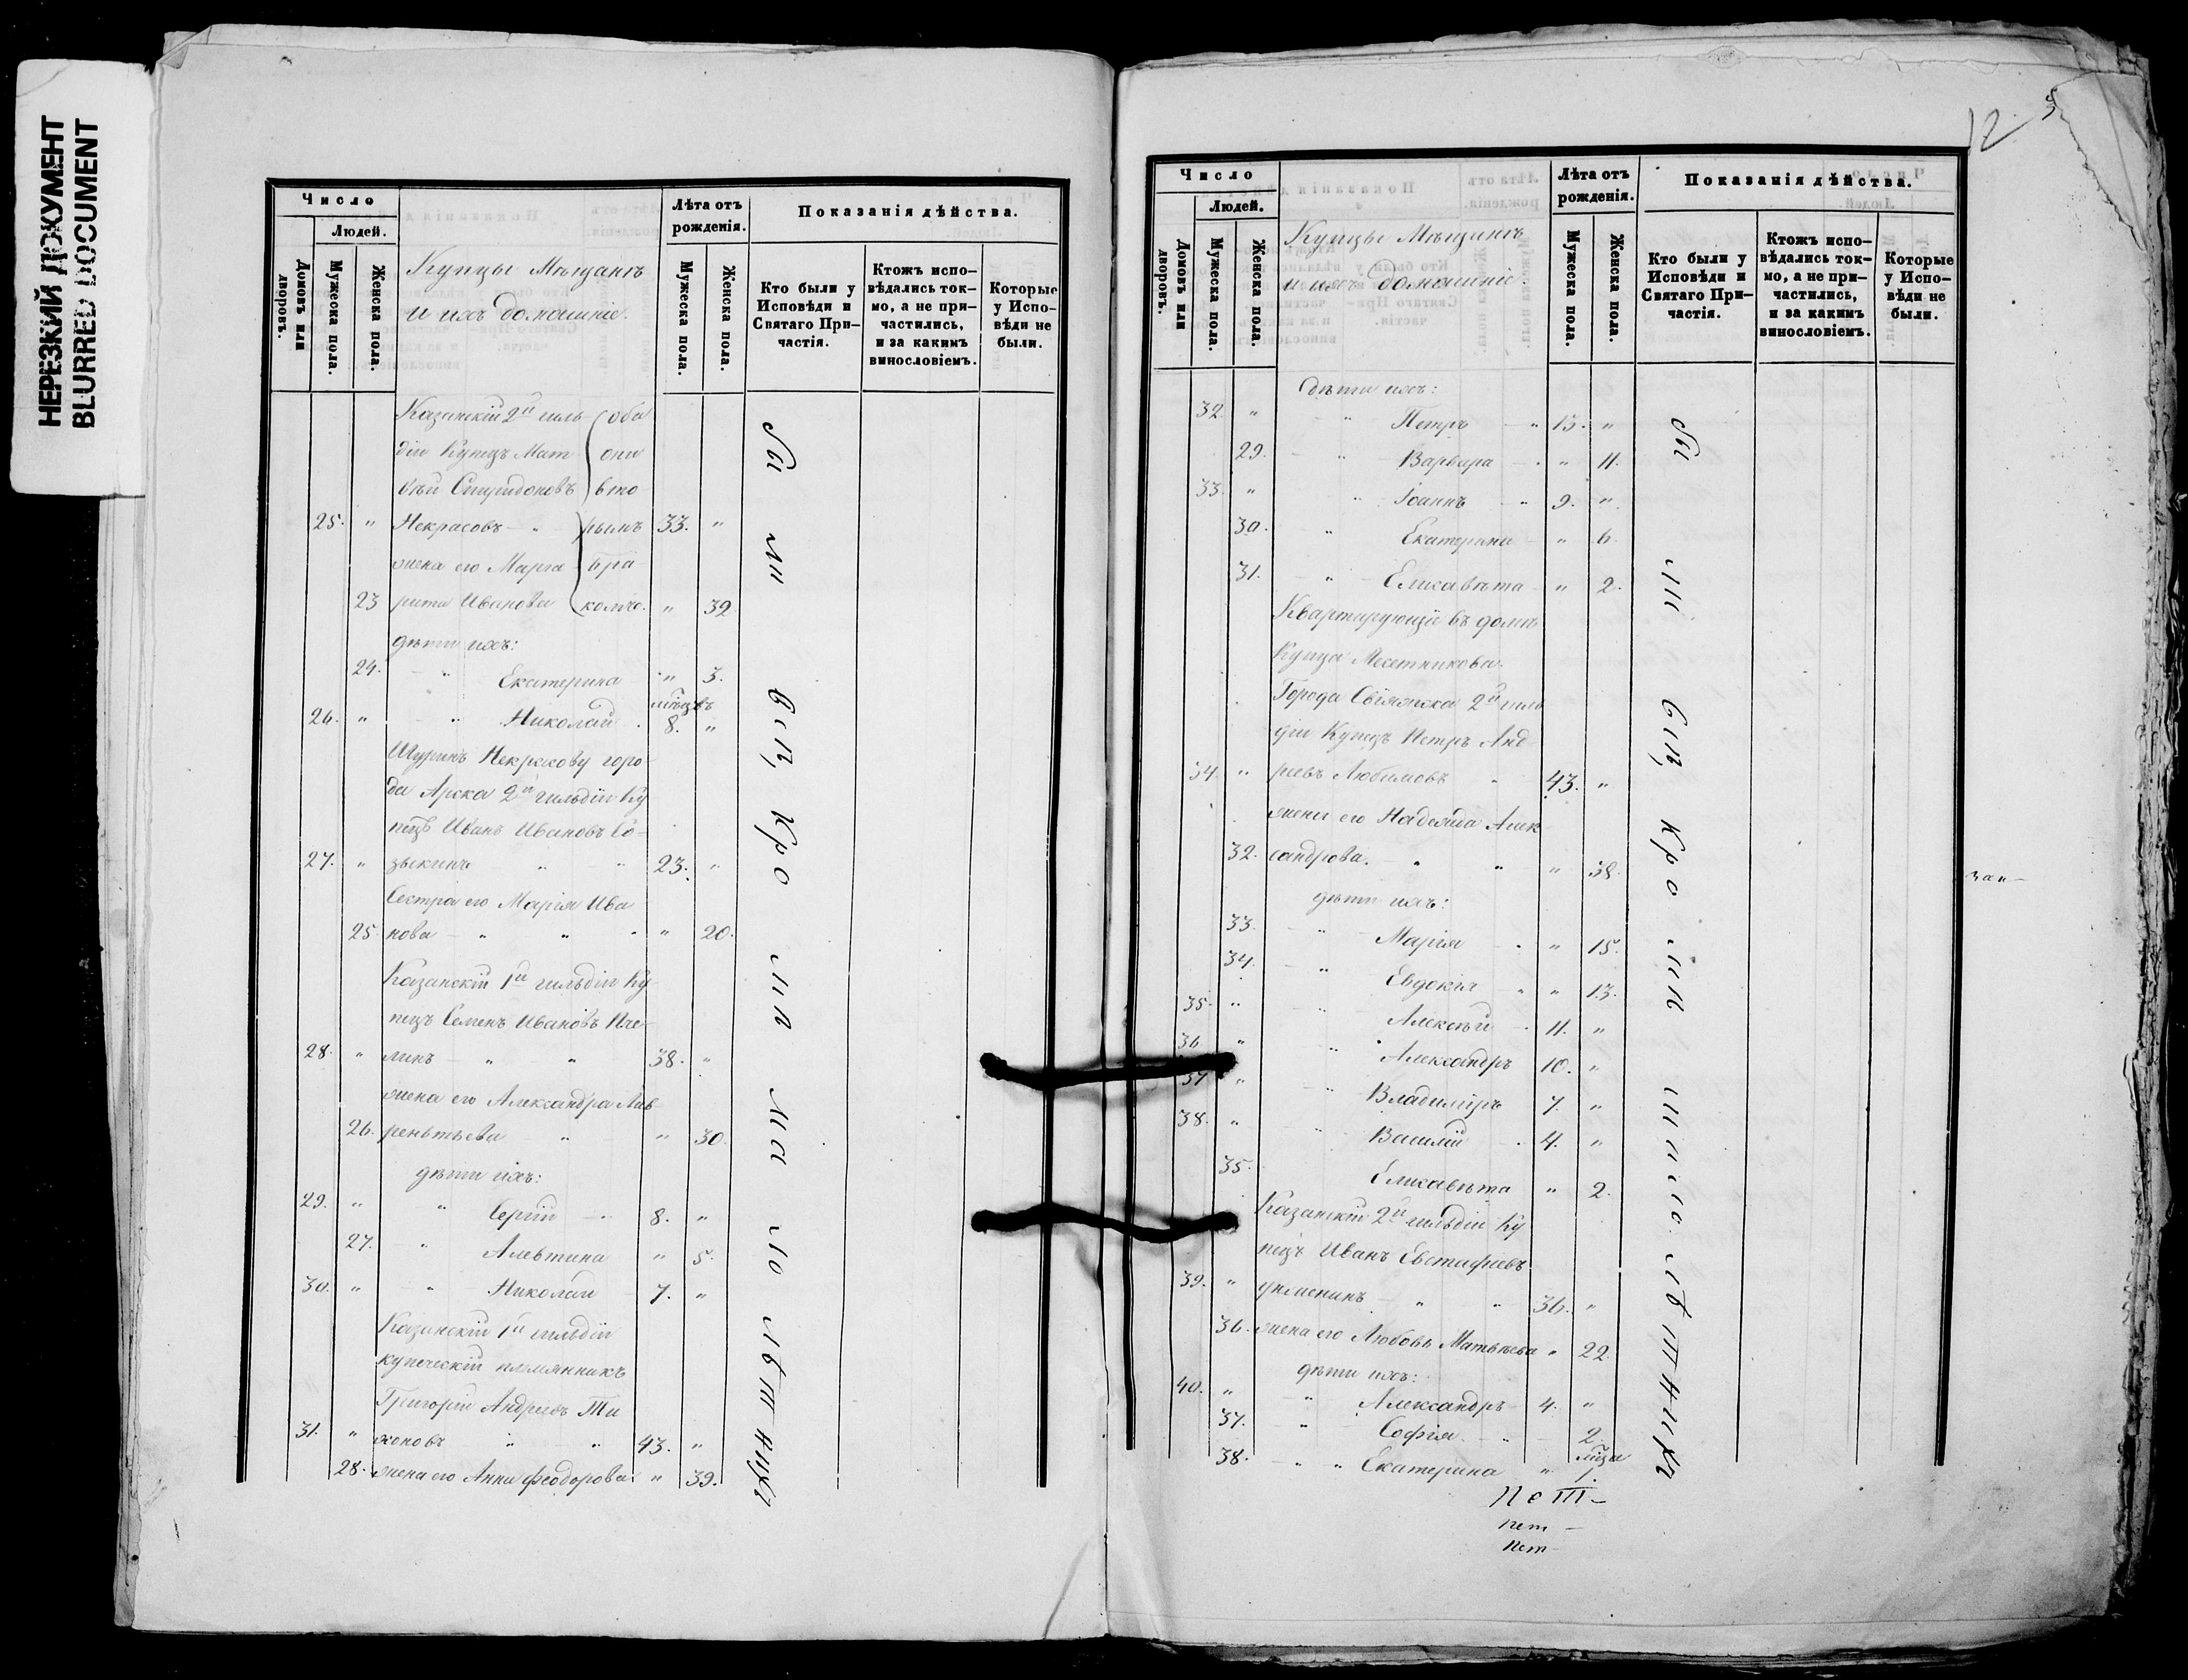 НЕРЕЗКИЙ ДОКУМЕНТ
BLURRED DOCUMENT
Число
Людей.
Домовъ или дворовъ.
Мужеска пола.
Женска пола.
Купцы Мѣщанъ
и ихъ домашніе.
Лѣта отъ рожденія.
Мужеска пола.
Женска пола.
Показанія дѣйства.
Кто были у Исповѣди и Святаго Причастія.
Ктожъ исповѣдались токмо, а не причастились, и за какимъ винословіемъ.
Которые у Исповѣди не были.
Казанскій 2й гиль (оба
діи Купецъ Мат они
вѣй Спиридоновъ вто
25. " Некрасовъ " рымъ 33. "
жена его Марга бра
23 рита Иванова комъ. " 32
дѣти ихъ:
24. " Екатерина " 3.
мѣсяцовъ
26. " " Николай 8. "
Шуринъ Некрасову горо
да Арска 2й гильдіи Ку
пецъ Иванъ Ивановъ Со-
27. " зыкинъ " " 23. "
Сестра его Марія Ива
25 нова " " " 20.
Казанскій 1й гильдіи Ку
пецъ Семенъ Ивановъ Пче
28. " линъ " " 38. "
жена его Александра Лав
26. рентьева " " 30.
дѣти ихъ:
29. " " Сергій 8. "
27. " Алевтина " 5.
30. " " Николай 7. "
Казанскій 1й гильдіи
купеческій племянникъ
Григорій Андреевъ Ти
31. " хоновъ " " 43. "
28. жена его Анна Феодорова " 39.
Бы ли въ Кро
12
Число
Людей.
Домовъ или дворовъ.
Мужеска пола.
Женска пола.
Купцы Мѣщанъ
и ихъ домашніе.
Лѣта отъ рожденія.
Мужеска пола.
Женска пола.
Показанія дѣйства.
Кто были у Исповѣди и Святаго Причастія.
Ктожъ исповѣдались токмо, а не причастились, и за какимъ винословіемъ.
Которые у Исповѣди не были.
дѣти ихъ:
32. " " Петръ " 13. "
29. " Варвара " 11.
33. " " Іоаннъ " 9. "
30. " Екатерина " 6.
31. " Елисавѣта " 2.
Квартирующіе въ домѣ
Купца Месетникова.
Города Свіяжска 2й гиль
діи Купецъ Петръ Анд
34. " реевъ Любимовъ " 43. "
жена его Надежда Алек
32. сандрова. " " " 38.
дѣти ихъ:
33. " Марія " 15.
34. " Евдокія " " 13.
35. " Алексѣй 11. "
36 " " Александръ 10. "
37 " " Владиміръ 7. "
38. " " Василій 4. "
35. Елисавѣта " 2.
Казанскій 2й гильдіи Ку
пецъ Иванъ Евстафіевъ
39. " " " 36. "
36. жена его Любовь Матвѣева " 22.
дѣти ихъ:
40. " " Александръ 4. "
37. " Софія " 2.
мѣсяца
38. " " Екатерина " 1.
Бы ли въ Кро
Пет
пет
Пет